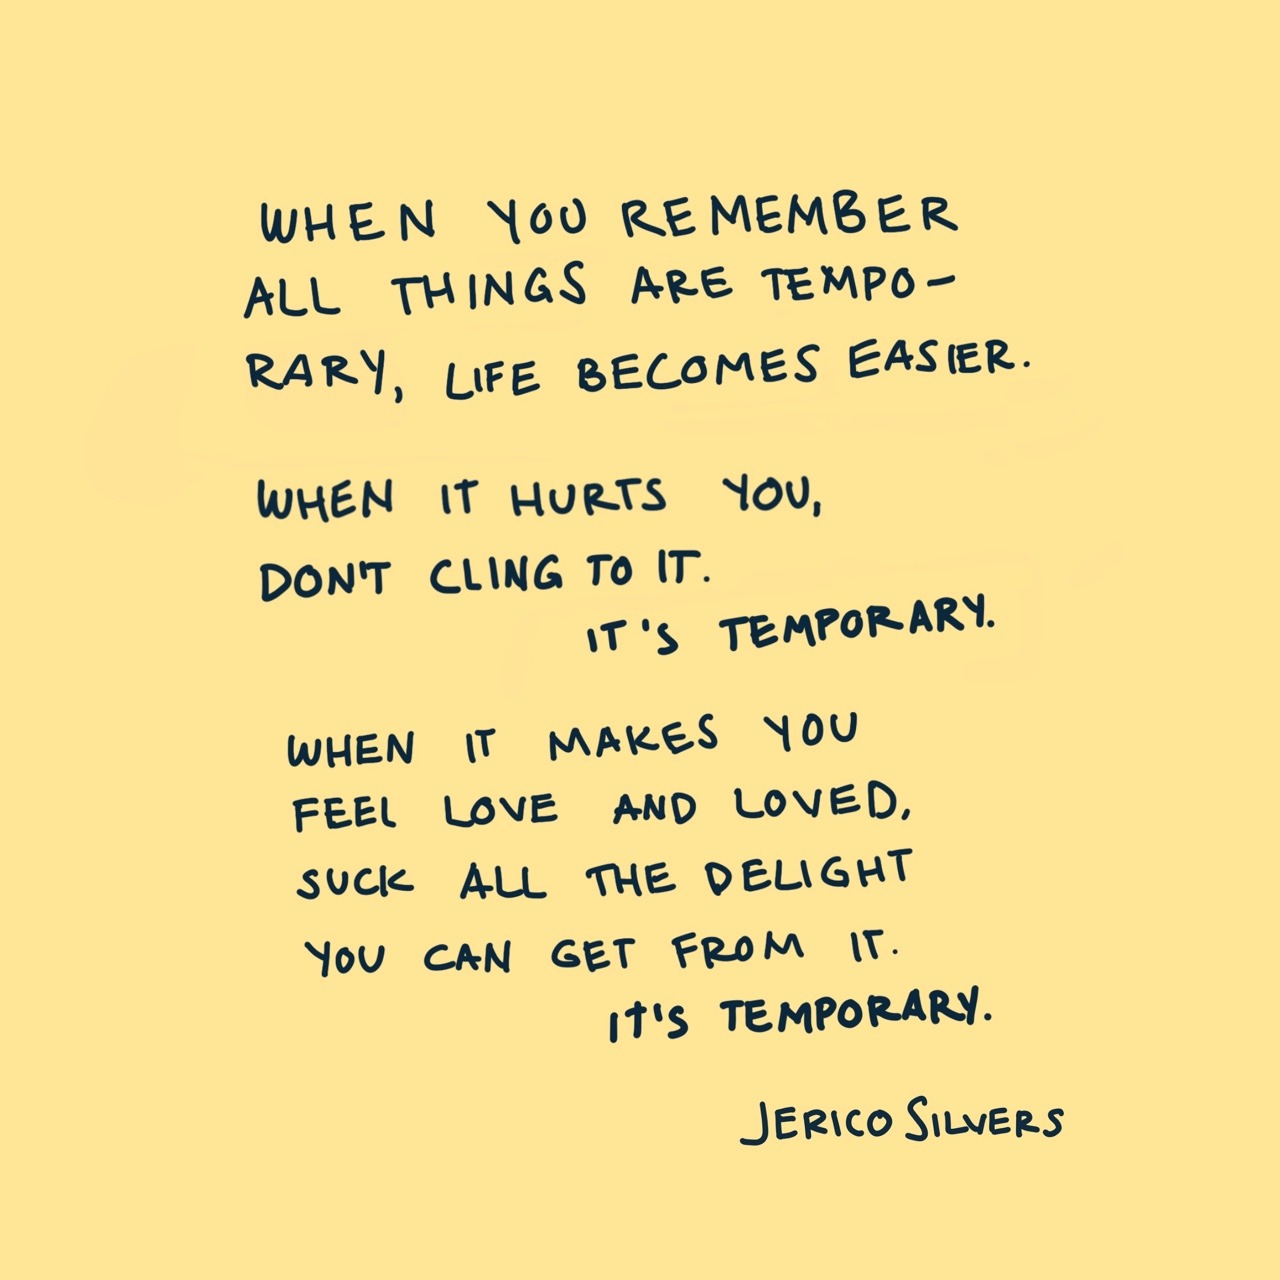 WHEN YOU REMEMBER
ALL THINGS ARE TEMPO-
RARY, LIFE BECOMES EASIER.
WHEN IT HURTS YOU,
DON'T CLING TO IT.
IT'S TEMPORARY.
WHEN IT MAKES YOU
FEEL LOVE AND LOVED,
SUCK ALL THE DELIGHT
YOU CAN GET FROM IT.
IT'S TEMPORARY.
JERICO SILVERS